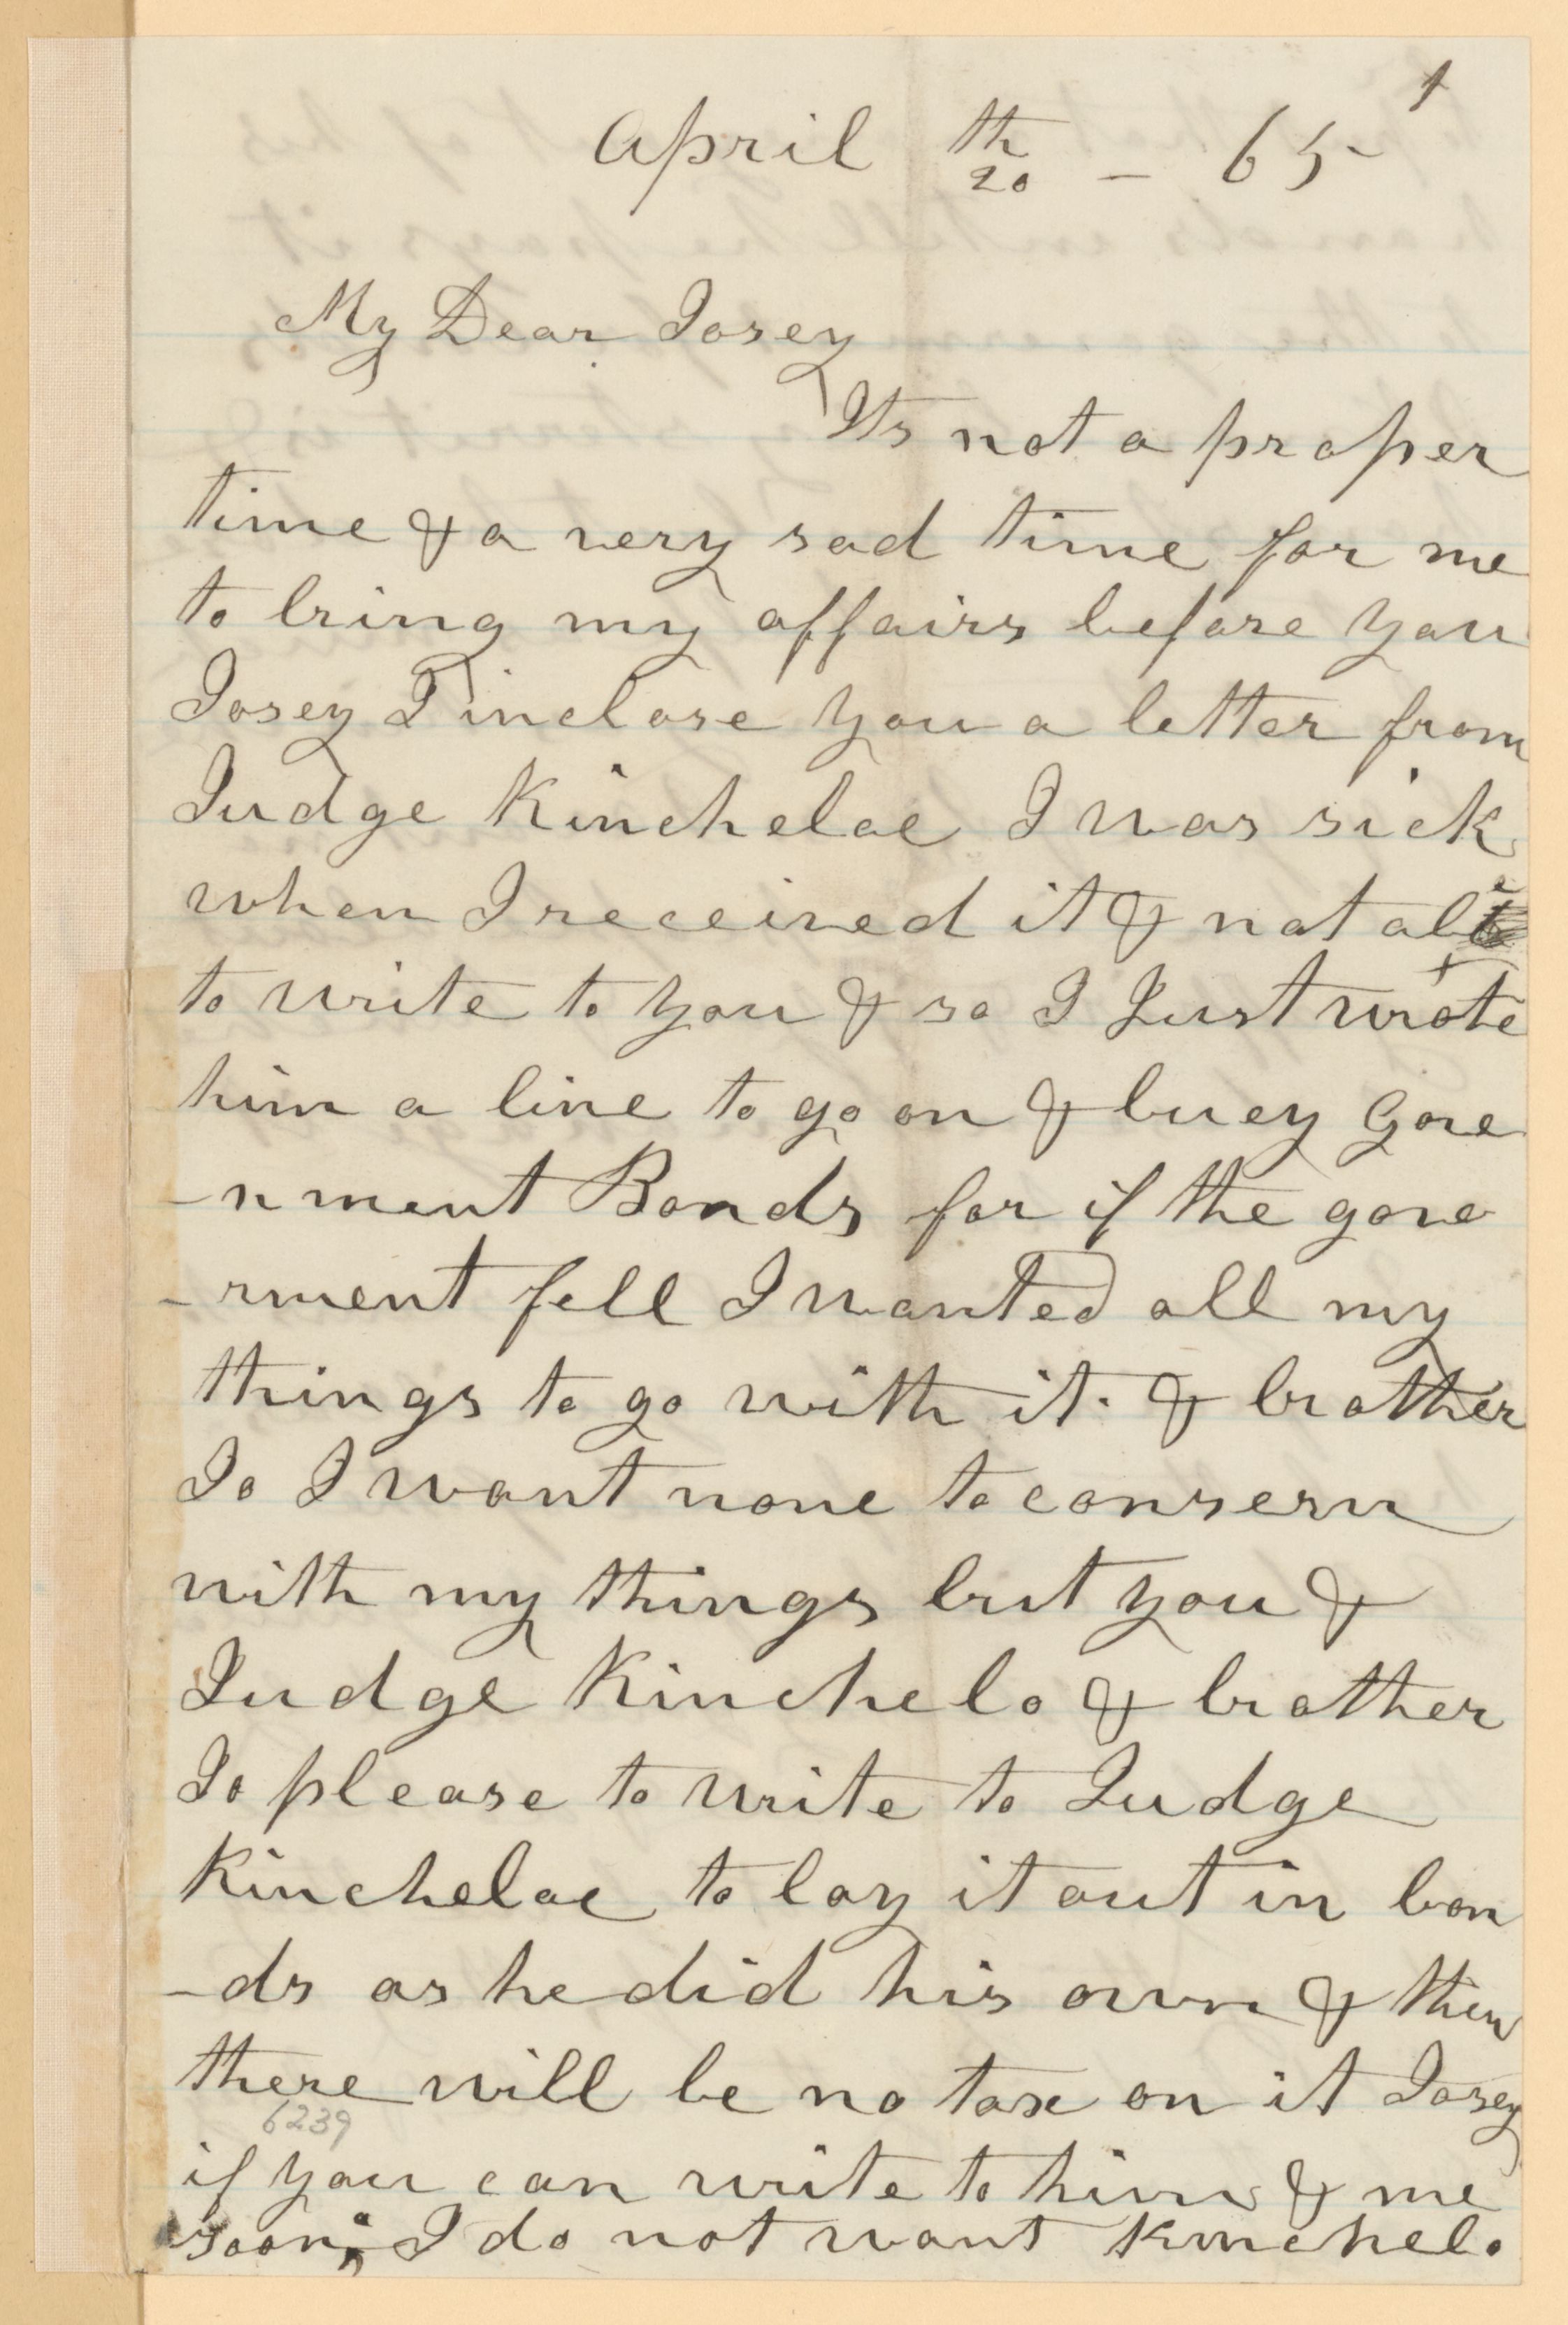 1
April 20th - 65
My Dear Josey
Its not a proper
time & a very sad time for me
to bring my affairs before you
Josey I inclose you a letter from
Judge Kincheloe I was sick
when I received it & not abl
to write to you & so I Just wrote
him a line to go on & buey Gove
-nment Bonds for if the gove
-rment fell I wanted all my
things to go with it. & brother
Jo I want none to consern
with my things but you &
Judge Kinchelo & brother
Jo please to write to Judge
Kincheloe to lay it out in bon
-ds as he did his own & then
there will be no tax on it Josey
6239
if you can write to him & me
soon, I do not want Kinchelo